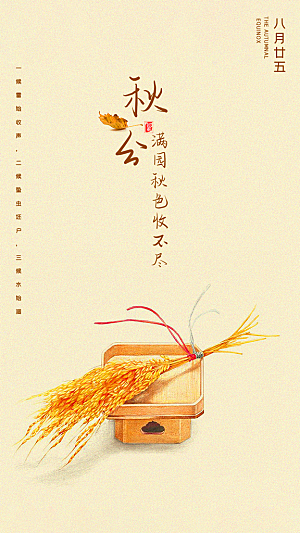 八月廿五
THE AUTUMNAL
EQUINOX
秋分
满园秋色收不尽
一候雷始收声，二候蛰虫坯户，三候水始涸